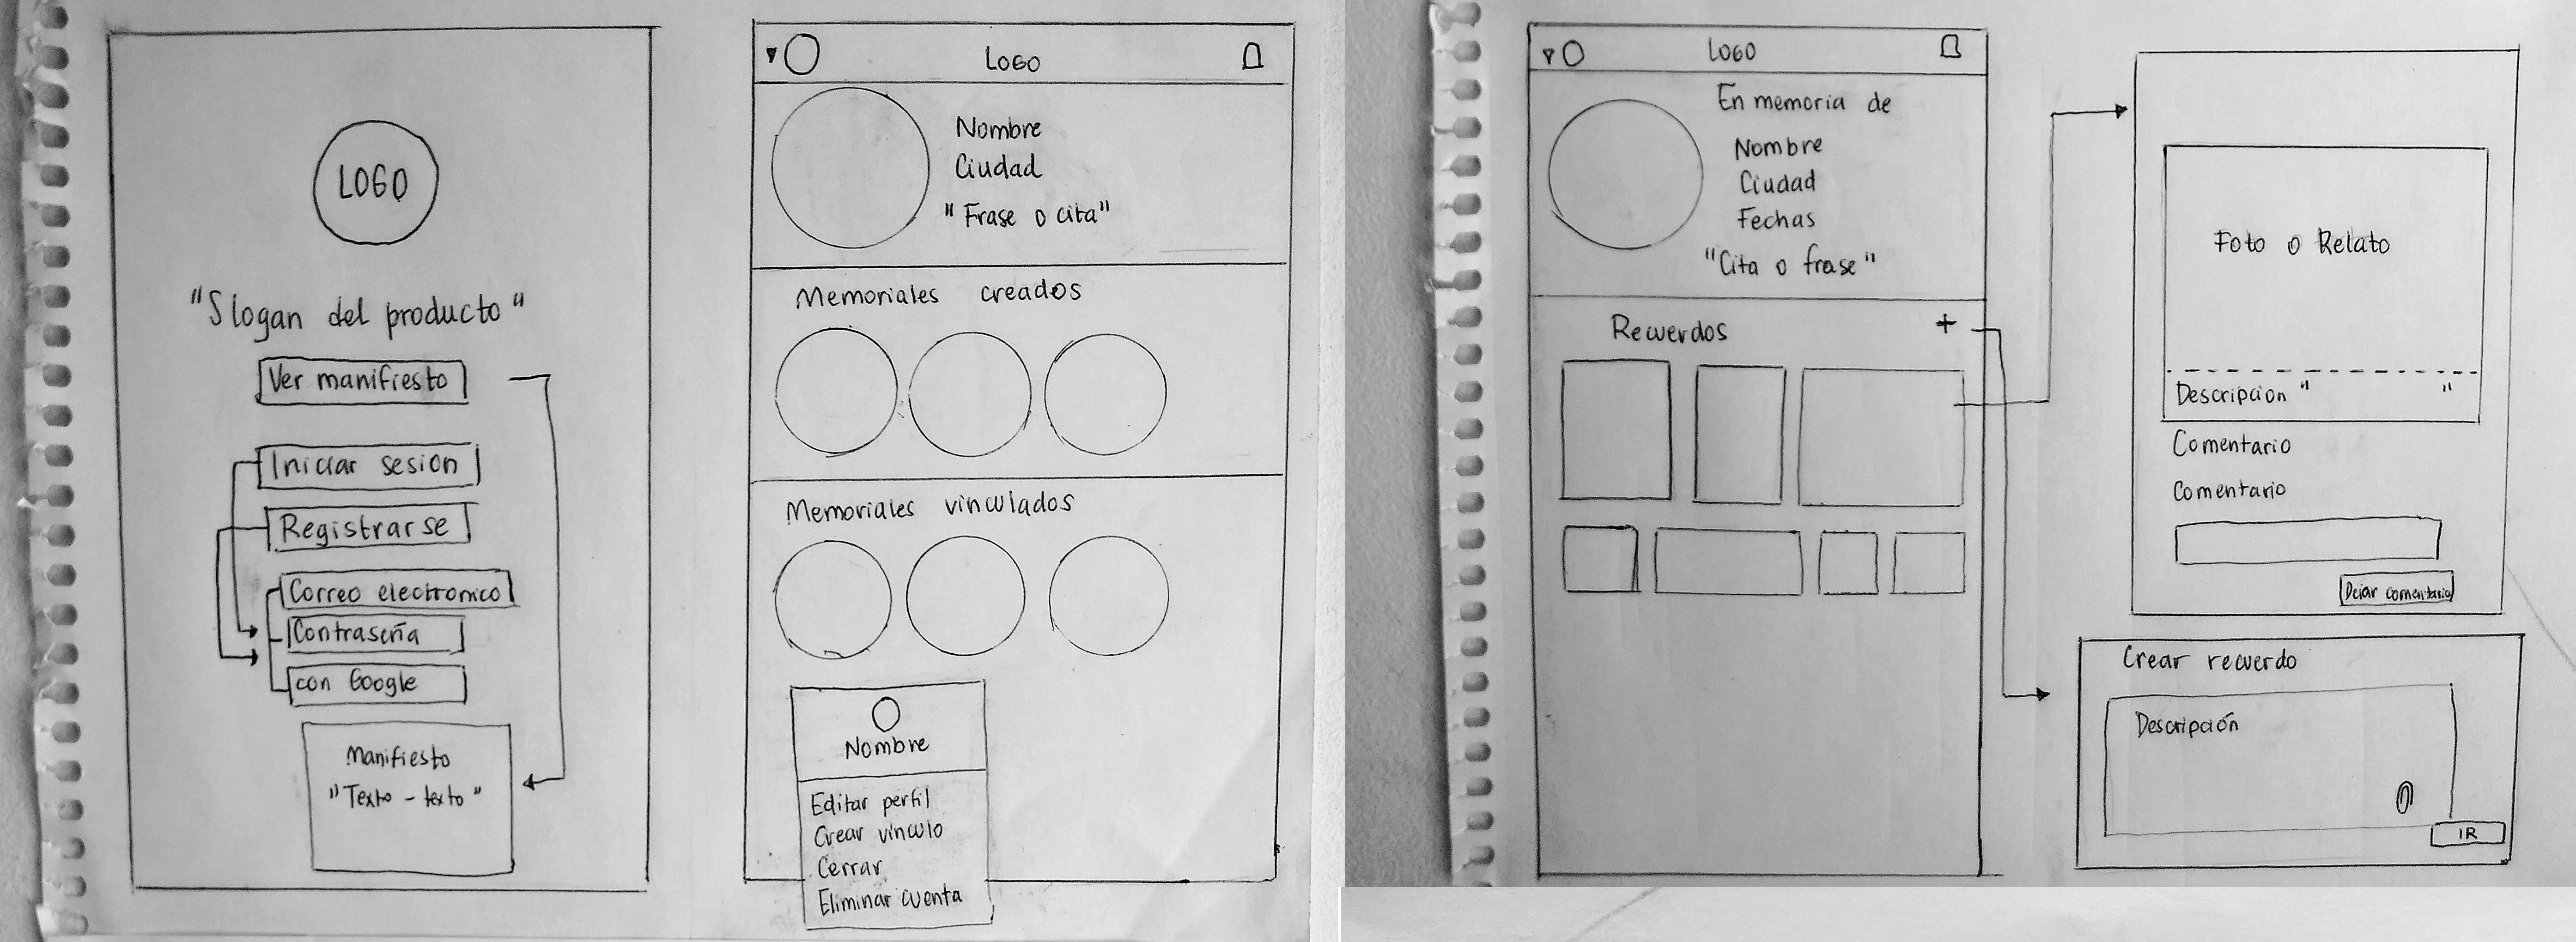 LOGO
"Slogan del producto"
Ver manifiesto
Iniciar sesión
Registrarse
Correo electronico
Contraseña
con Google
Manifiesto
"Texto - texto"
LOGO
Nombre
Ciudad
"Frase o cita"
Memoriales creados
Memoriales vinculados
Nombre
Editar perfil
Crear vínculo
Cerrar
Eliminar cuenta
LOGO
En memoria de
Nombre
Ciudad
Fechas
"Cita o frase"
Recuerdos +
Foto o Relato
Descripcion " "
Comentario
Comentario
Dejar comentario
Crear recuerdo
Descripción
IR